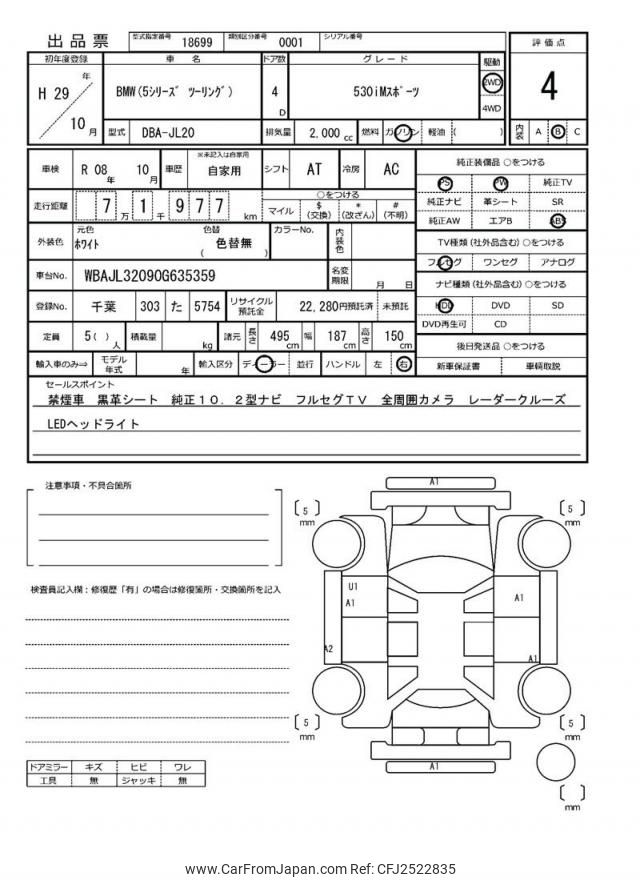 出品票 型式指定番号 18699 類別区分番号 0001 シリアル番号
評価点
4
内装 A B C
初年度登録 車名 ドア数 グレード 駆動
H 29 年 10 月 BMW(5シリーズ ツーリング) 4 D 530iMスポーツ 2WD 4WD
型式 DBA-JL20 排気量 2,000 cc 燃料 ガソリン 軽油 ( )
車検 R 08 年 10 月 車歴 ※未記入は自家用 自家用 シフト AT 冷房 AC
走行距離 7 万 1 千 9 7 7 km
○をつける
マイル $ (交換) * (改ざん) # (不明)
外装色 元色 ホワイト 色替 ( 色替無 ) カラーNo. 内装色
車台No. WBAJL32090G635359 名変期限 月 日
登録No. 千葉 303 た 5754 リサイクル預託金 22,280円預託済 未預託
定員 5( ) 人 積載量 kg 諸元 長さ 495 cm 幅 187 cm 高さ 150 cm
輸入車のみ⇒ モデル年式 年 輸入区分 ディーラー 並行 ハンドル 左 右
純正装備品 ○をつける
PS PW 純正TV
純正ナビ 革シート SR
純正AW エアB ABS
TV種類(社外品含む) ○をつける
フルセグ ワンセグ アナログ
ナビ種類(社外品含む) ○をつける
HDD DVD SD
DVD再生可 CD
後日発送品 ○をつける
新車保証書 車輌取説
セールスポイント
禁煙車 黒革シート 純正10.2型ナビ フルセグTV 全周囲カメラ レーダークルーズ
LEDヘッドライト
注意事項・不具合箇所
検査員記入欄：修復歴「有」の場合は修復箇所・交換箇所を記入
ドアミラー キズ ヒビ ワレ
工具 無 ジャッキ 無
A1
[ 5 ] mm
[ 5 ] mm
U1
A1
A1
A2
A1
[ 5 ] mm
[ 5 ] mm
A1
[ ] mm
www.CarFromJapan.com Ref: CFJ2522835